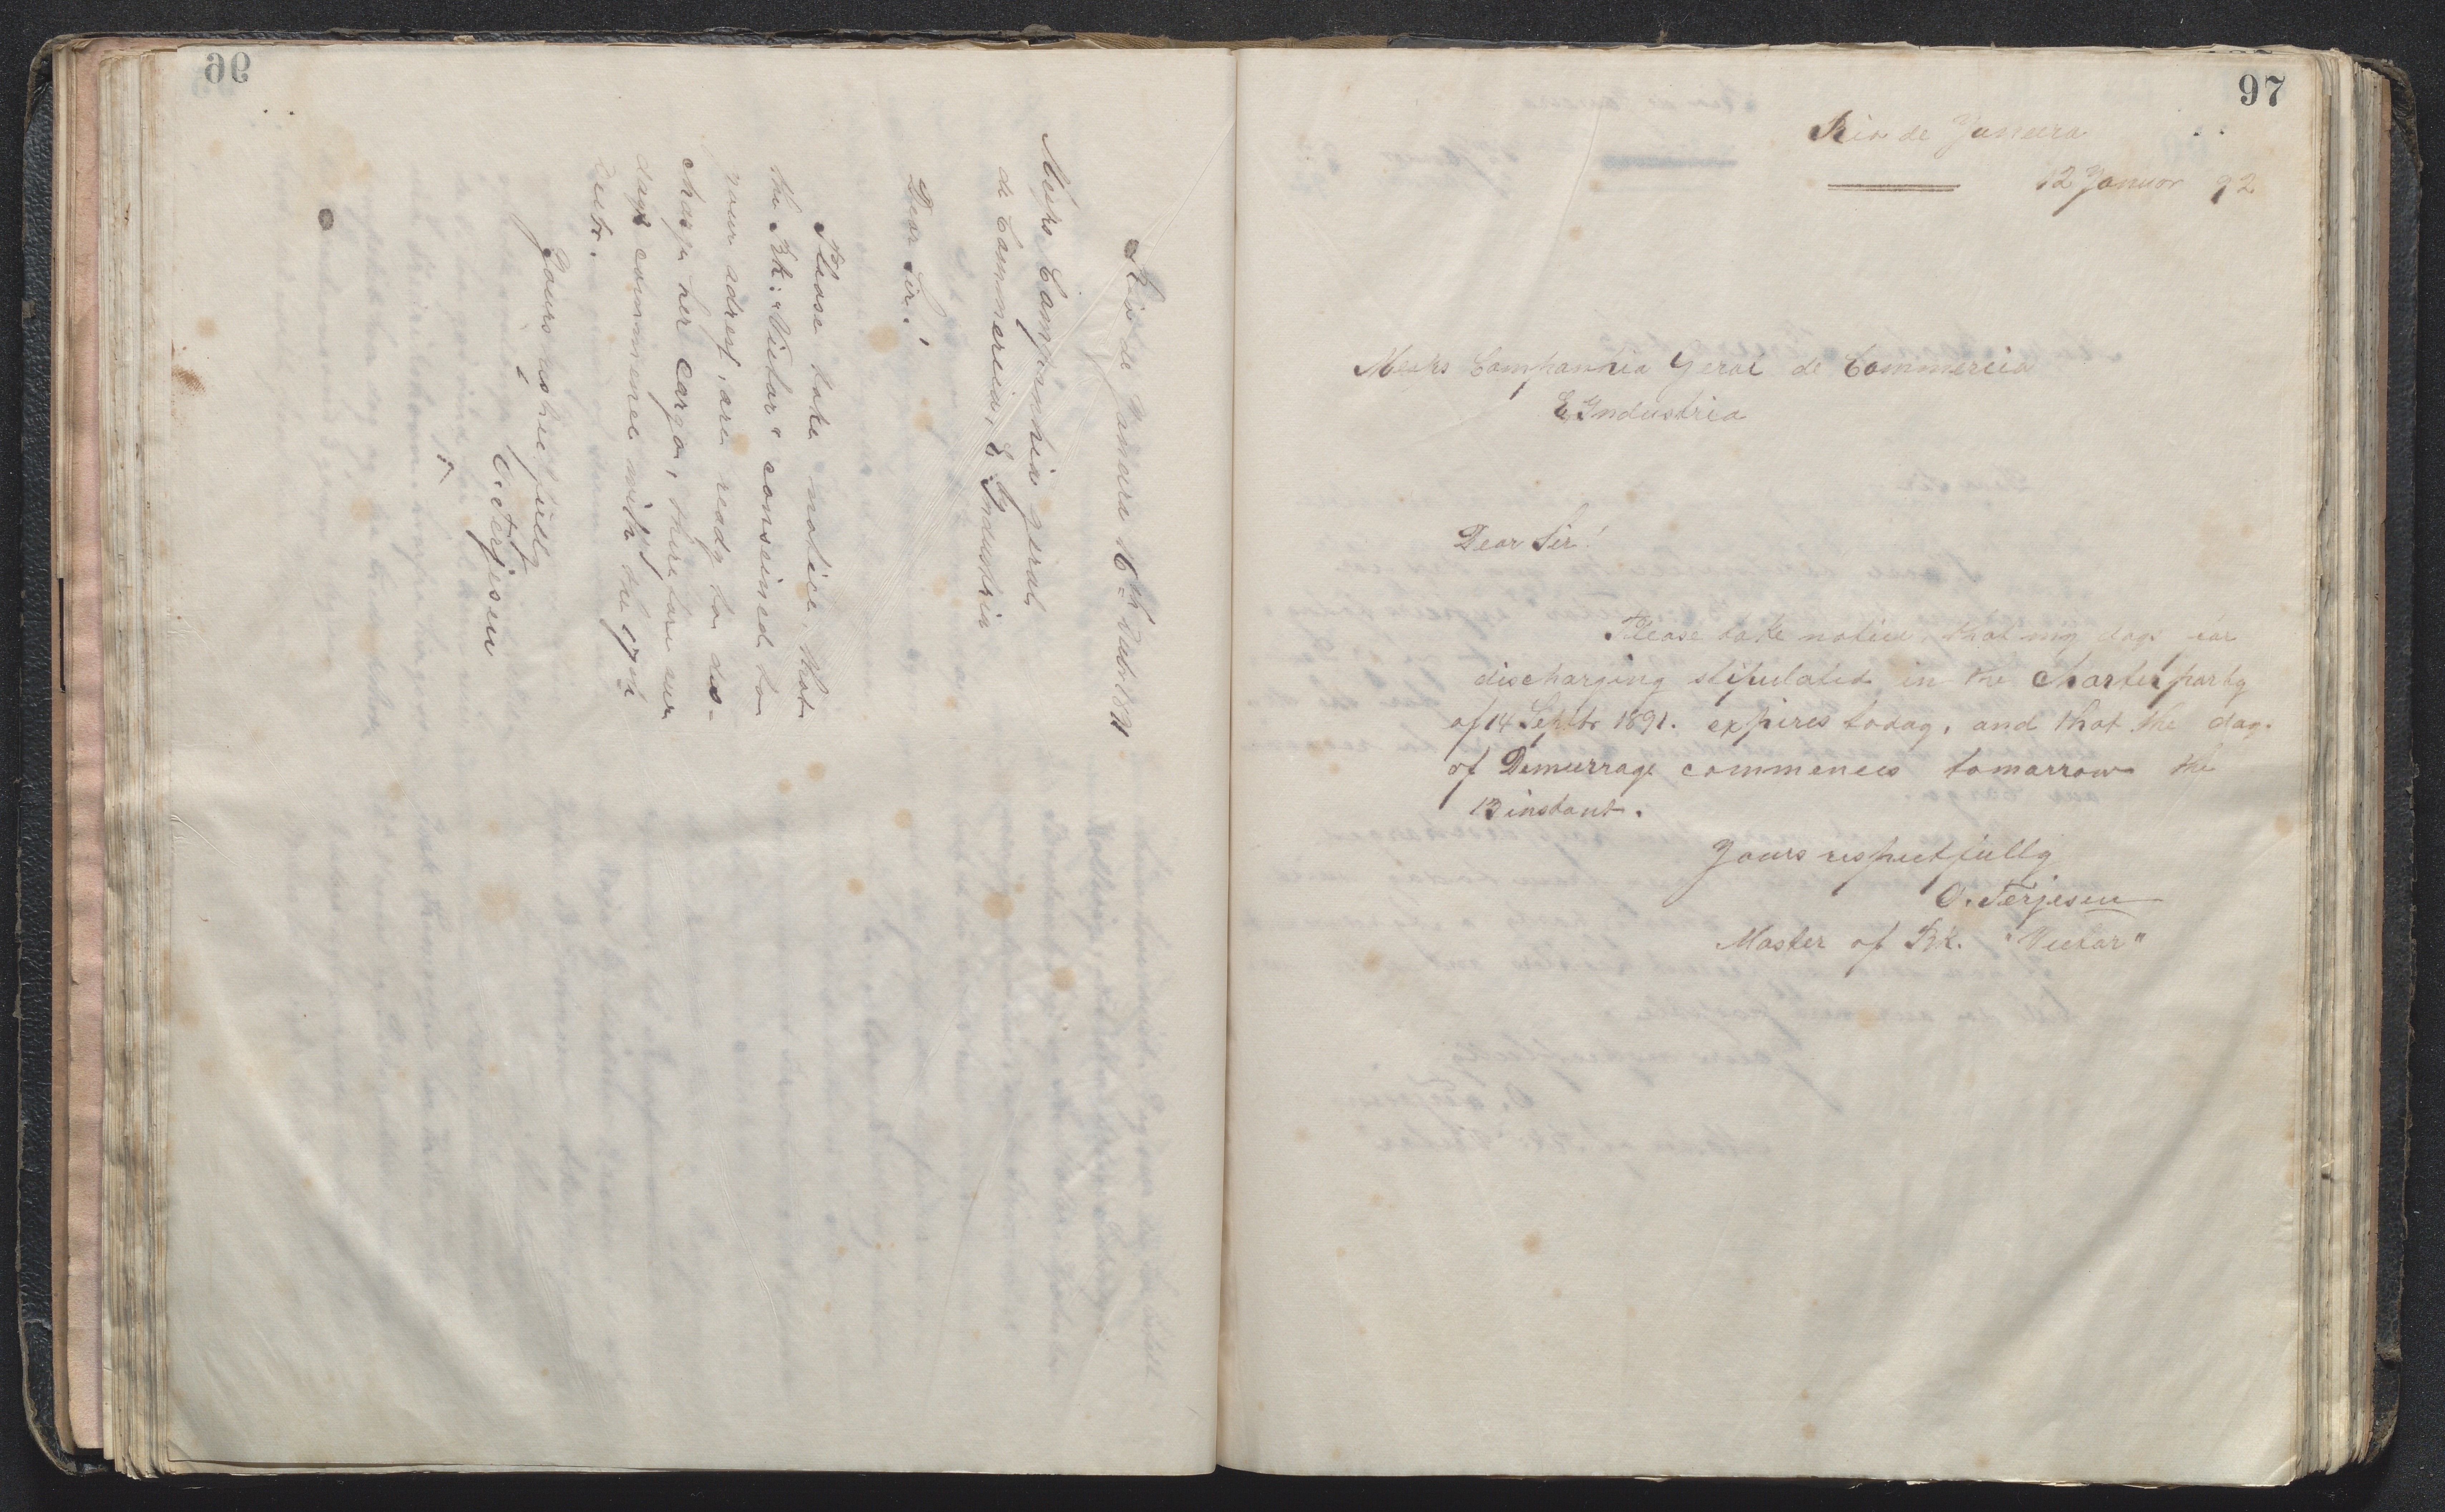 96
Rio de Janeira 16th Dcbr. 1891
Messrs Companhia geral
de Commercia, E Industria
Dear Sir!
Please take notice, that
the Bk: "Victor" conseined to
your adress, are ready to dis-
charge her cargo, therefore our
days commence with the 17th
Dcbr.
Yours respectfully
O. Terjesen
97
Rio de Janeira
12 Januar 92
Messrs Companhia Geral de Commercia
E Industria
Dear Sir!
Please take notice, that my days for
discharging stipulated in the Charterparty
of 14 Septbr 1891. expires today, and that the days
of Demurrage commences tomarrow the
13 instant.
Yours respectfully
O. Terjesen
Master of Bk. "Victor"